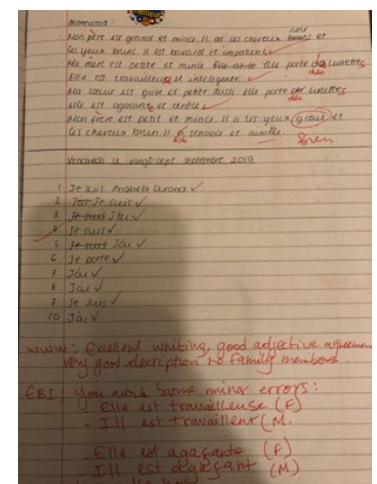 Homework:
Mon père est grand et mince. Il at les cheveux bruns noir et
les yeux bruns. Il est bavard et impatient.
Ma mère est petite et mince. Elle porte des lunettes
Elle est travailleuse et intelegente.
Ma sœur est grose et petite aussi elle porte des lunettes
elle est agacante et drôle.
Mon frère est petit et mince. Il a les yeux graus et
les cheveux brun. Il sensible et
Bien
Vendredi le vingt sept septembre 2019
1. Je suis Anabelle Durand ✓
2. Je suis ✓
3. J'ai ✓
4. Je suis ✓
5. J'ai ✓
6. Je porte ✓
7. J'ai ✓
8. J'ai ✓
9. Je suis ✓
10. J'ai ✓
WWW: Excellent writing, good adjective agreement
very good description to family members.
EBI: you avoid some minor errors:
- Elle est travailleuse (F)
- Ill est travaillent (M.
- Elle est agaçante (F)
- Ill est agaçant (M)